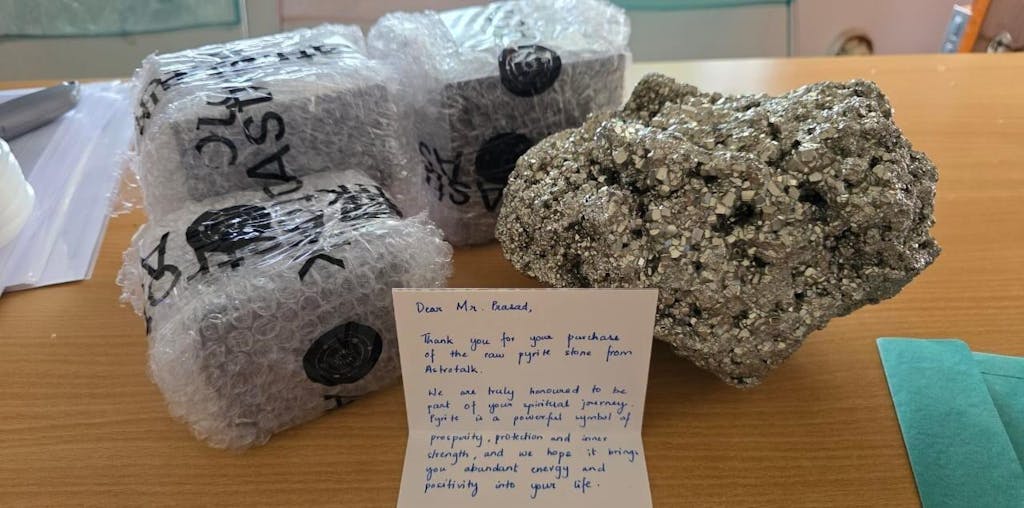 Dear Mr. Prasad,
Thank you for your purchase
of the raw pyrite stone from
Astrotalk.
We are truly honoured to be
part of your spiritual journey.
Pyrite is a powerful symbol of
prosperity, protection and inner
strength, and we hope it brings
you abundant energy and
positivity into your life.